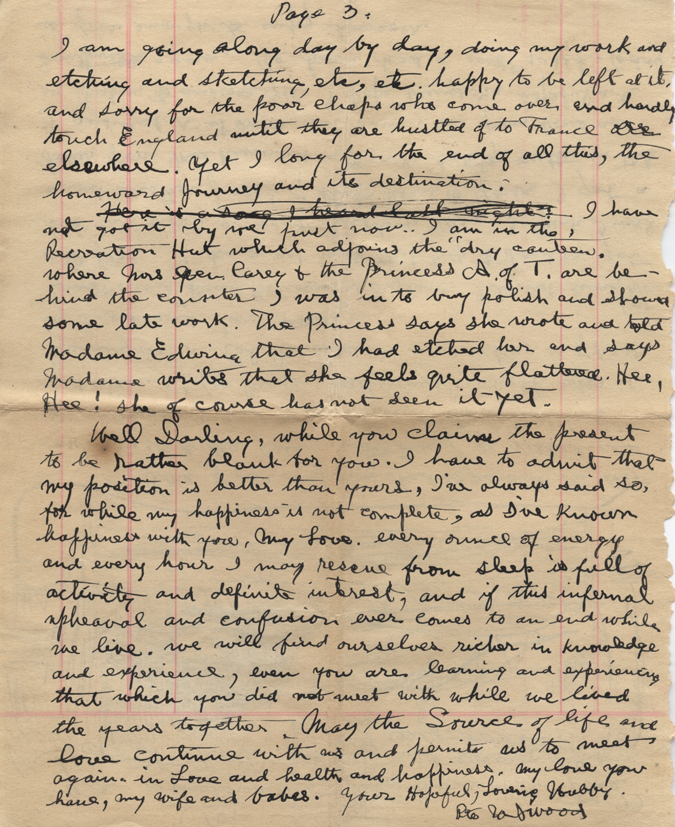 Page 3.
I am going along day by day, doing my work and
etching and sketching, etc, etc. happy to be left at it,
and sorry for the poor chaps who come over and hardly
touch England until they are hustled of to France or
elsewhere. Yet I long for the end of all this, the
homeward Journey and its destination.
Here is a song I heard last night! I have
not got it by me just now.. I am in the,
Recreation Hut which adjoins the "dry canteen.
where Mrs Carey & the Princess A. of T. are be-
hind the counter I was in to buy polish and showed
some late work. The Princess says she wrote and told
Madame Edwina that I had etched her and says
Madame writes that she feels quite flattered. Hee,
Hee! she of course has not seen it yet.
Well Darling, while you claim the present
to be rather blank for you. I have to admit that
my position is better than yours, I've always said so,
for while my happiness is not complete, as I've known
happiness with you, My Love. every ounce of energy
and every hour I may rescue from sleep is full of
activity and definite interest, and if this infernal
upheaval and confusion ever comes to an end while
we live. we will find ourselves richer in knowledge
and experience, even you are learning and experiencing
that which you did not meet with while we lived
the years together. May the Source of life and
love continue with us and permit us to meet
again. in Love and health and happiness. my love you
have, my wife and babes. Your Hopeful, Loving Hubby.
Pte